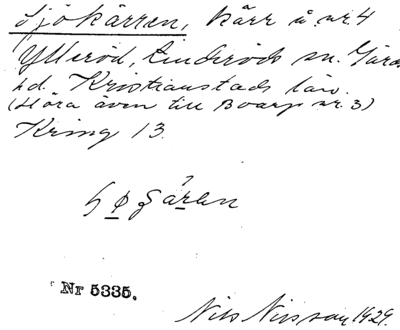 Sjökärren, kärr å nr 4
Ylleröd, Linderöds sn. Gärds
hd. Kristianstads län.
(Höra även till Boarp nr. 3)
Kring 13.
Nr 5335.
Nils Nilsson 1929.